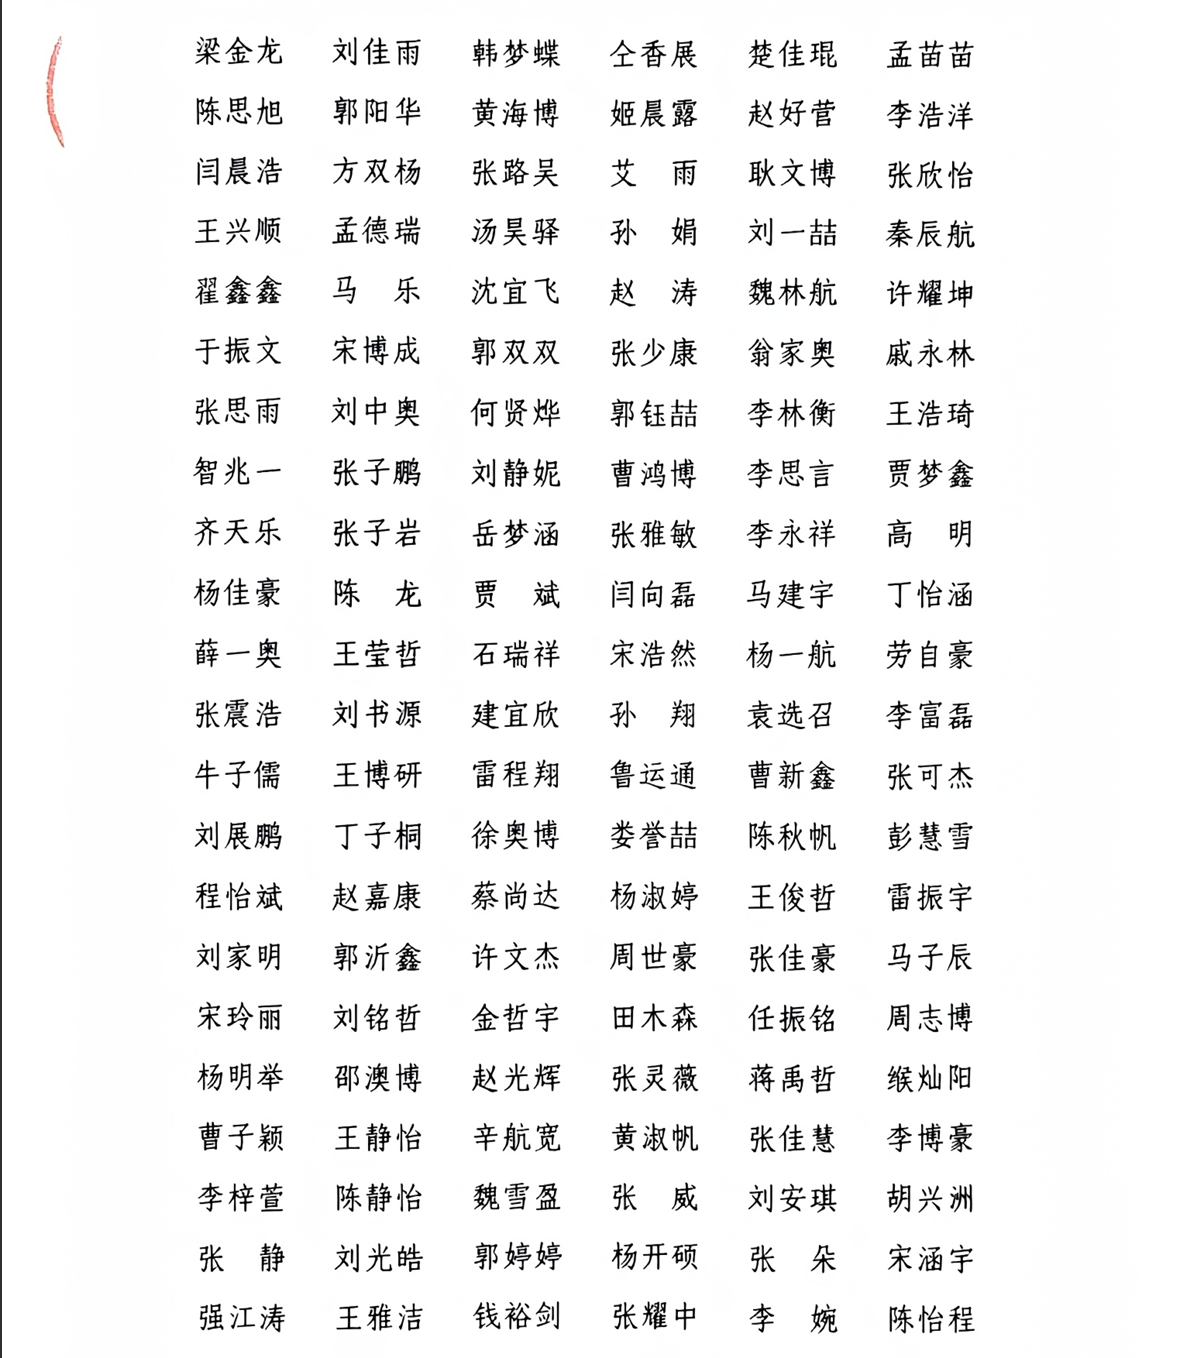 梁金龙 刘佳雨 韩梦蝶 仝香展 楚佳琨 孟苗苗
陈思旭 郭阳华 黄海博 姬晨露 赵好营 李浩洋
闫晨浩 方双杨 张路吴 艾 雨 耿文博 张欣怡
王兴顺 孟德瑞 汤昊驿 孙 娟 刘一喆 秦辰航
翟鑫鑫 马 乐 沈宜飞 赵 涛 魏林航 许耀坤
于振文 宋博成 郭双双 张少康 翁家奥 戚永林
张思雨 刘中奥 何贤烨 郭钰喆 李林衡 王浩琦
智兆一 张子鹏 刘静妮 曹鸿博 李思言 贾梦鑫
齐天乐 张子岩 岳梦涵 张雅敏 李永祥 高 明
杨佳豪 陈 龙 贾 斌 闫向磊 马建宇 丁怡涵
薛一奥 王莹哲 石瑞祥 宋浩然 杨一航 劳自豪
张震浩 刘书源 建宜欣 孙 翔 袁选召 李富磊
牛子儒 王博研 雷程翔 鲁运通 曹新鑫 张可杰
刘展鹏 丁子桐 徐奥博 娄誉喆 陈秋帆 彭慧雪
程怡斌 赵嘉康 蔡尚达 杨淑婷 王俊哲 雷振宇
刘家明 郭沂鑫 许文杰 周世豪 张佳豪 马子辰
宋玲丽 刘铭哲 金哲宇 田木森 任振铭 周志博
杨明举 邵澳博 赵光辉 张灵薇 蒋禹哲 缑灿阳
曹子颖 王静怡 辛航宽 黄淑帆 张佳慧 李博豪
李梓萱 陈静怡 魏雪盈 张 威 刘安琪 胡兴洲
张 静 刘光皓 郭婷婷 杨开硕 张 朵 宋涵宇
强江涛 王雅洁 钱裕剑 张耀中 李 婉 陈怡程